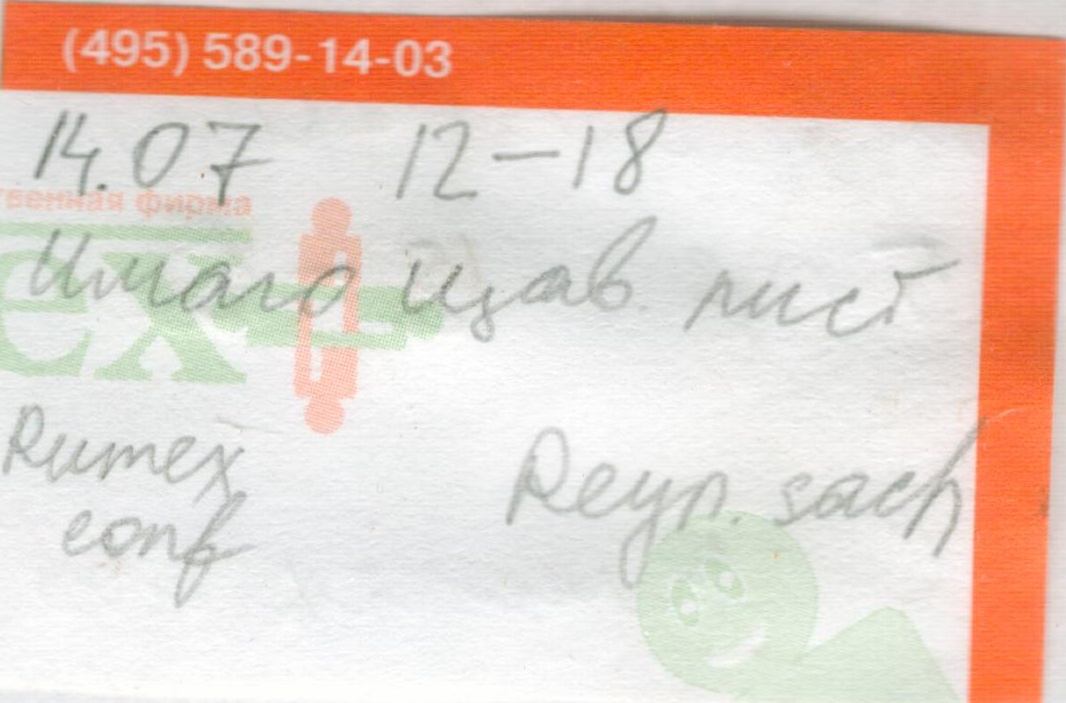 (495) 589-14-03
14.07 12-18
твенная фирма
Имаго щав. лист
ex
Rumex Reyn. sach
conf